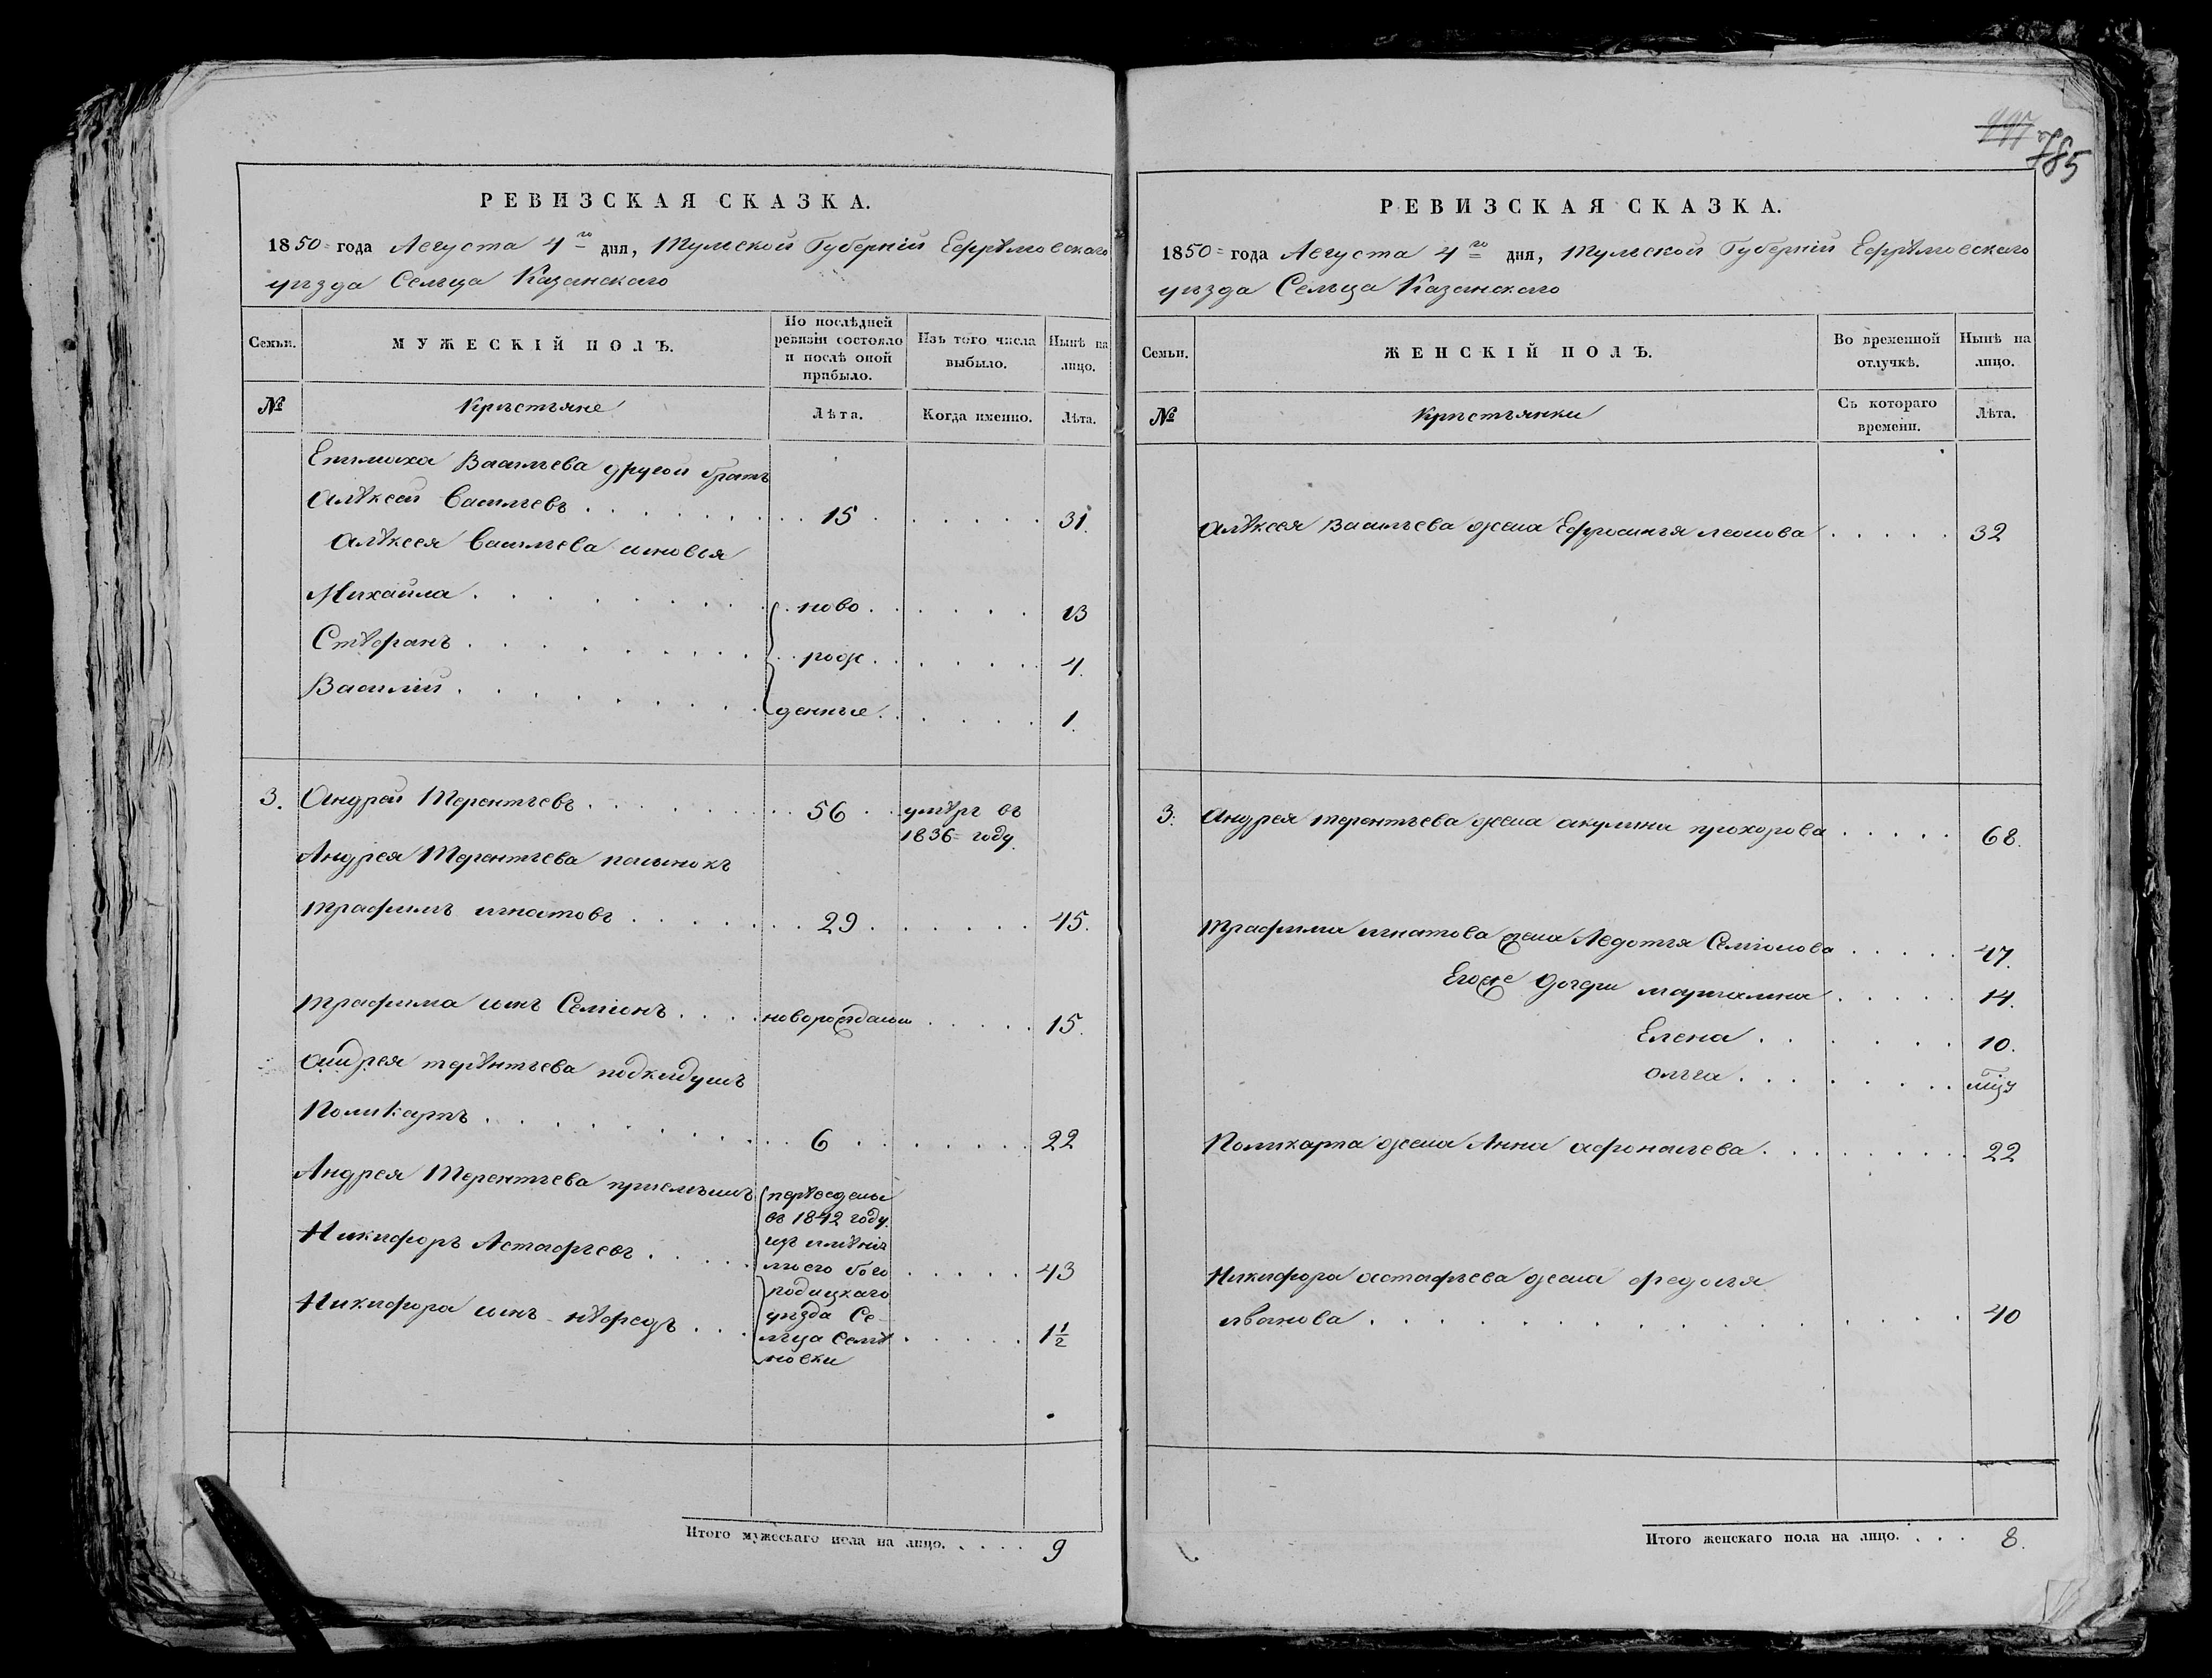 РЕВИЗСКАЯ СКАЗКА.
1850 года Августа 4го дня, Тульской Губерніи Ефрѣмовскаго
уѣзда Сельца Казанскаго
Семьи.
МУЖЕСКІЙ ПОЛЪ.
По послѣдней ревизіи состояло и послѣ оной прибыло.
Изъ того числа выбыло.
Нынѣ на лицо.
№
Крѣстьяне
Лѣта.
Когда именно.
Лѣта.
Васильева другой братъ
Алѣксей Васильевъ 15 31.
Алѣксея Васильева сыновья
Михайла ново 13
Стѣфанъ рож 4.
Василій денные 1.
3. Андрей Терентьевъ 56 умѣръ въ
1836 году.
Андрея Терентьева пасынокъ
Трафимъ игнатовъ 29 45.
Трафима сынъ Семіонъ новорожданы 15.
Андрея терѣнтьева подкидушъ
Поликарпъ 6 22
Андрея Терентьева приемышъ
Никифоръ Астафьевъ 43
Никифора сынъ нѣфедъ 1 1/2
перѣведены
въ 1842 году.
изъ имѣнія
моего бого
родицкаго
уѣзда Се-
льца Семѣ
новки
Итого мужескаго пола на лицо. 9
997
785
РЕВИЗСКАЯ СКАЗКА.
1850 года Августа 4го дня, Тульской Губерніи Ефрѣмовскаго
уѣзда Сельца Казанскаго
Семьи.
ЖЕНСКІЙ ПОЛЪ.
Во временной отлучкѣ.
Нынѣ на лицо.
№
Крѣстьянки
Съ котораго времени.
Лѣта.
Алѣксея Васильева жена Ефросинья леонова 32
3. Андрея терентьева жена акулина прохорова 68.
Трафима игнатова жена Авдотья Семіонова 47.
Егоже дочери марьямна 14.
Елена 10.
ольга
Поликарпа жена Анна афонасьева 22
Никифора астафьева жена федосья
иванова 40
Итого женскаго пола на лицо. 8.